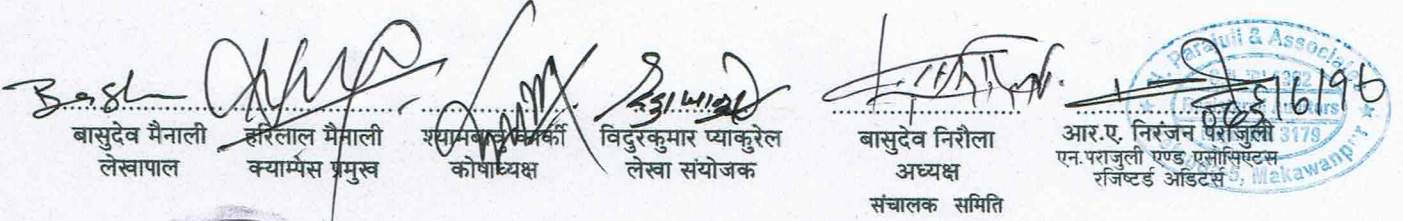 बासुदेव मैनाली
लेखापाल
हरिलाल मैनाली
क्याम्पस प्रमुख
कार्की
कोषाध्यक्ष
विदुरकुमार प्याकुरेल
लेखा संयोजक
बासुदेव निरौला
अध्यक्ष
संचालक समिति
आर.ए. निरंजन पराजुली
एन.पराजुली एण्ड एसोसिएटस
रजिष्टर्ड अडिटर्स
Parajuli & Associates
3179
Makawanpur